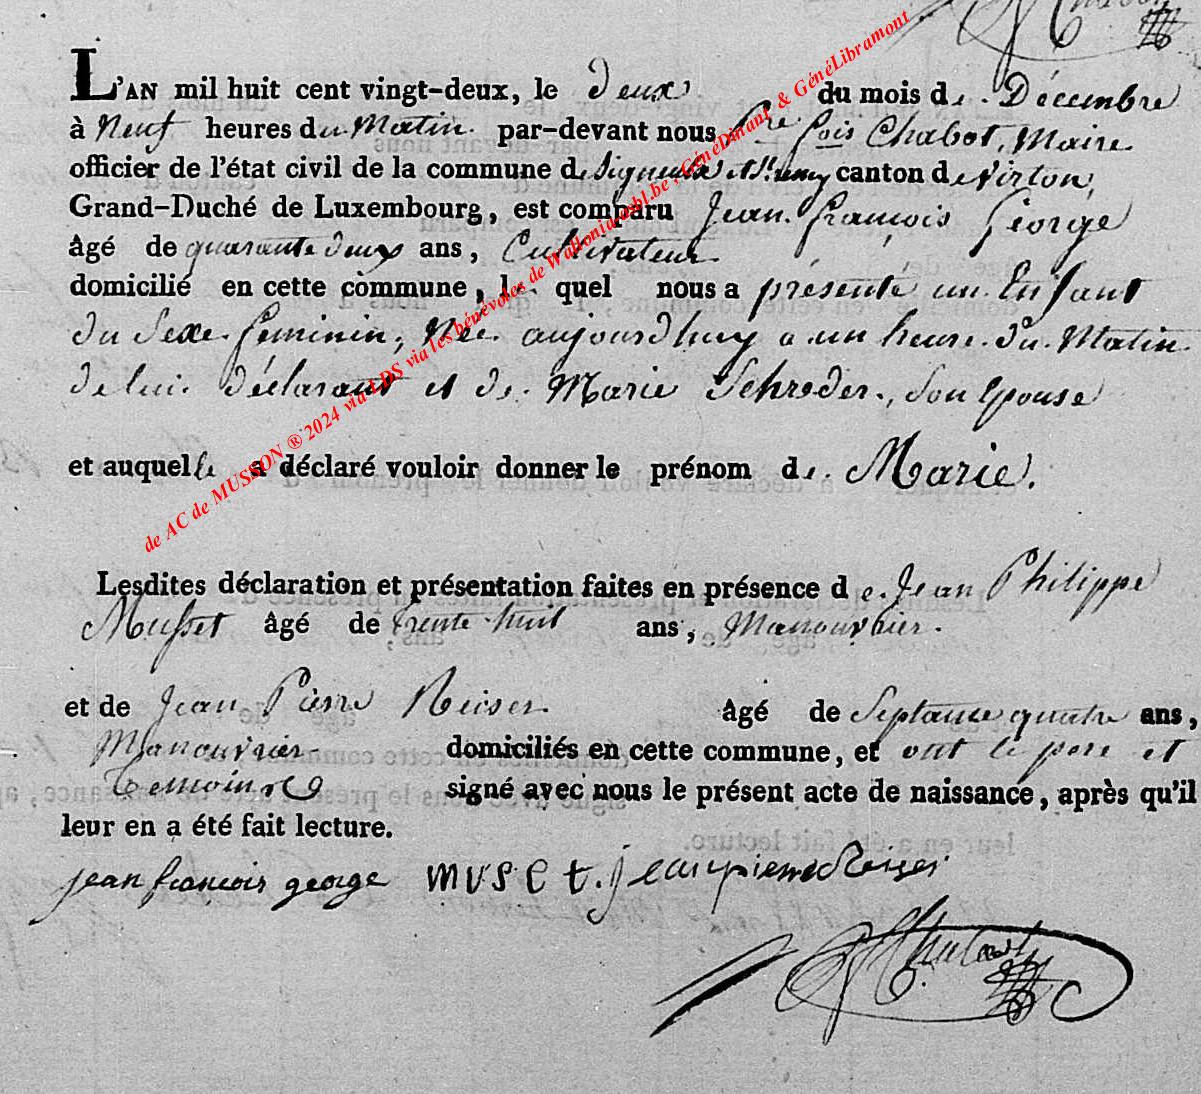 L'AN mil huit cent vingt-deux, le deux du mois de Décembre
à Neuf heures du Matin par-devant nous Pre fçois Chabot, Maire
officier de l'état civil de la commune de Signeulx et St. remy canton de Virton,
Grand-Duché de Luxembourg, est comparu Jean françois George
âgé de quarante deux ans, Cultivateur
domicilié en cette commune, le quel nous a présenté un Enfant
du Sexe feminin, Née aujourdhuy a un heure du Matin
de lui déclarant et de Marie Schreder, Son Epouse
et auquelle a déclaré vouloir donner le prénom de Marie.
Lesdites déclaration et présentation faites en présence de Jean Philippe
Musset âgé de trente huit ans, Manouvrier.
et de Jean Pierre Reiser âgé de Septante quatre ans,
Manouvrier domiciliés en cette commune, et ont le pere et
temoins signé avec nous le présent acte de naissance, après qu'il
leur en a été fait lecture.
jean francois george muset. jean pierre Reiser
Chabot
de AC de MUSSON ® 2024 via LDS via les bénévoles de Wallonia asbl.be, GénéDinant & GénéLibramont